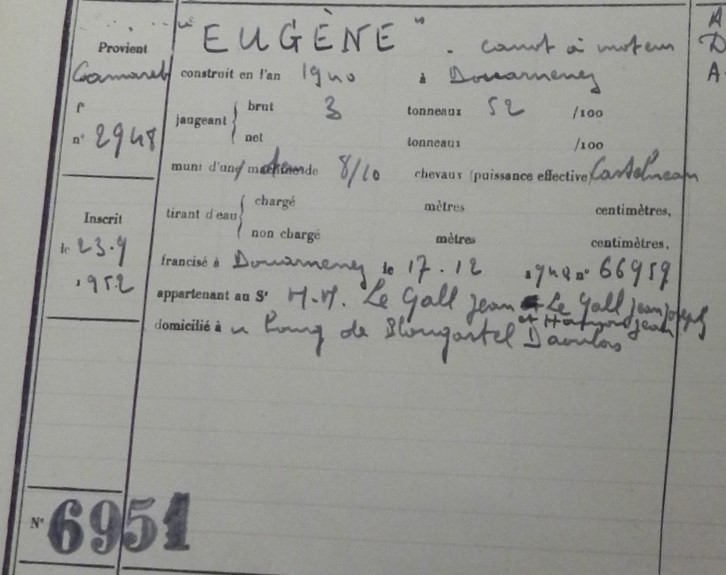 "EUGÈNE" . canot à moteur
A
D
A
Provient
Camaret construit en l'an 1940 à Douarnenez
f°
n° 2948
jaugeant brut 3 tonneaux 52 /100
net tonneaux /100
muni d'un moteur de 8/10 chevaux (puissance effective)
Inscrit
le 23.9
1952
tirant d'eau chargé mètres centimètres,
non chargé mètres centimètres,
francisé à Douarnenez le 17.12 n° 66959
appartenant au Sr M.M. Le Gall Jean Le Gall Jean Joseph
et Jean
domicilié à bourg de Plougastel Daoulas
N° 6951